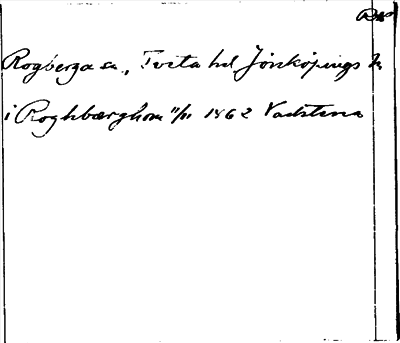 Rogberga sn., Tveta hd Jönköpings l.
i Roghbærghom 11/11 1462 Vadstena